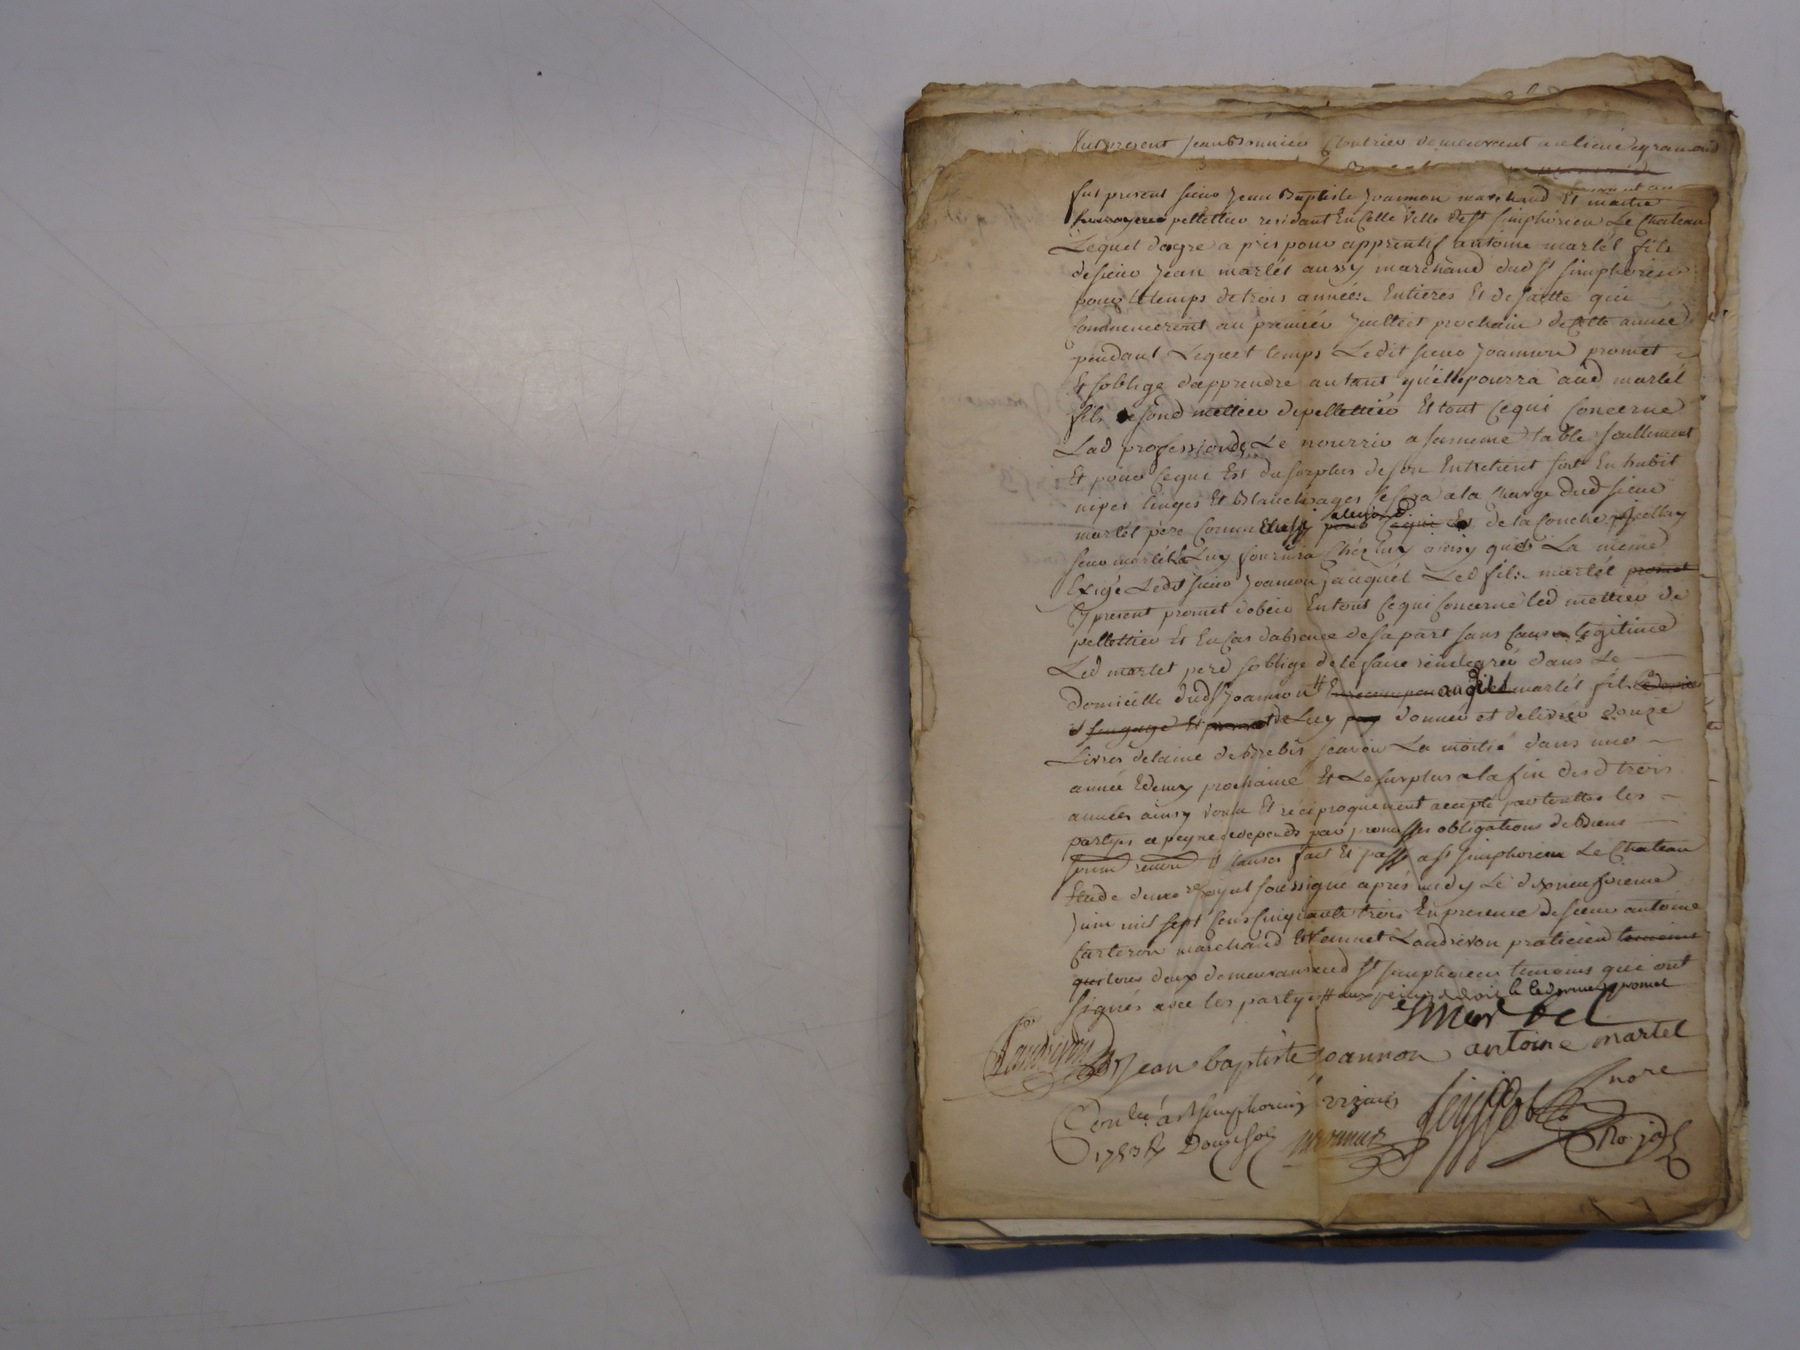 fut present Jean Bonnier demeurant au lieu de gramond
fut present sieur Jean Baptiste Joannon marchand Et maitre
pellettier residant En Cette ville de st simphorien Le Chateau
Lequel de gre a pris pour apprentif antoine martel fils
de sieur Jean martel aussy marchand dud st simphorien
pour le temps de trois années Entieres Et de suitte qui
Commenceront au premier Juillet prochain de Cette année
pendant Lequel temps Ledit sieur Joannon promet
Et soblige dapprendre autant quil pourra aud martel
fils fond mettier de pellettier Et tout Cequi Concerne
Lad profession de Le nourrir a sa meme table seullement
Et pour Cequi Est du surplus de son Entretient soit En habit
nipes linges Et Blanchisages sera a la Charge dud sieur
martel pere Comm aussy de la Couche
sieur martel Luy fournira Chez luy ainsy que La meme
Exigé Ledit sieur Joannon Led fils martel promet
Cy present promet dobeir En tout Cequi Concerne led mettier de
pellettier Et En Cas dabsence de sa part sans Cause legitime
Led martel pere soblige de le faire reintegrer dans Le
Domicille dud sr Joannon martel fils
de Luy donner et delivrer douze
Livres de laine de Brebis scavoir La moitié dans une
année Edemy prochaine Et Le surplus a la fin desd trois
années ainsy voulu Et reciproquement accepté par touttes les
partyes a peyne de depends par promesses obligations de Biens
Clauses fait Et passé a st simphorien Le Chateau
Etude du nore royal soussigné aprés midy Le dixneufvieme
Juin mil sept Cens Cinquante trois En presence de sieur antoine
farteron marchand Et Bonnet Landrivon praticien temoins
deux demeurans aud st simphorien temoins qui ont
signés avec les partyes
martel
Landrivon Jean baptiste Joannon antoine martel
nore
Con.lé a st simphorien
1753 Rx Douze sols
Royal